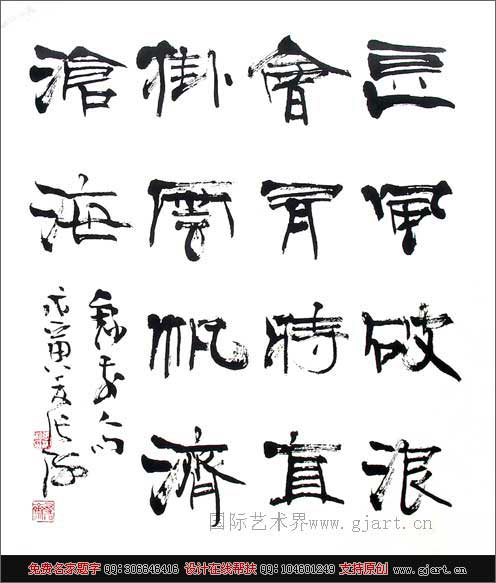 長風破浪
會有時直
掛雲帆濟
滄海
戊寅
国际艺术界www.gjart.cn
免费名家题字 QQ:306646416 设计在线帮扶 QQ:104601249 支持原创 www.gjart.cn